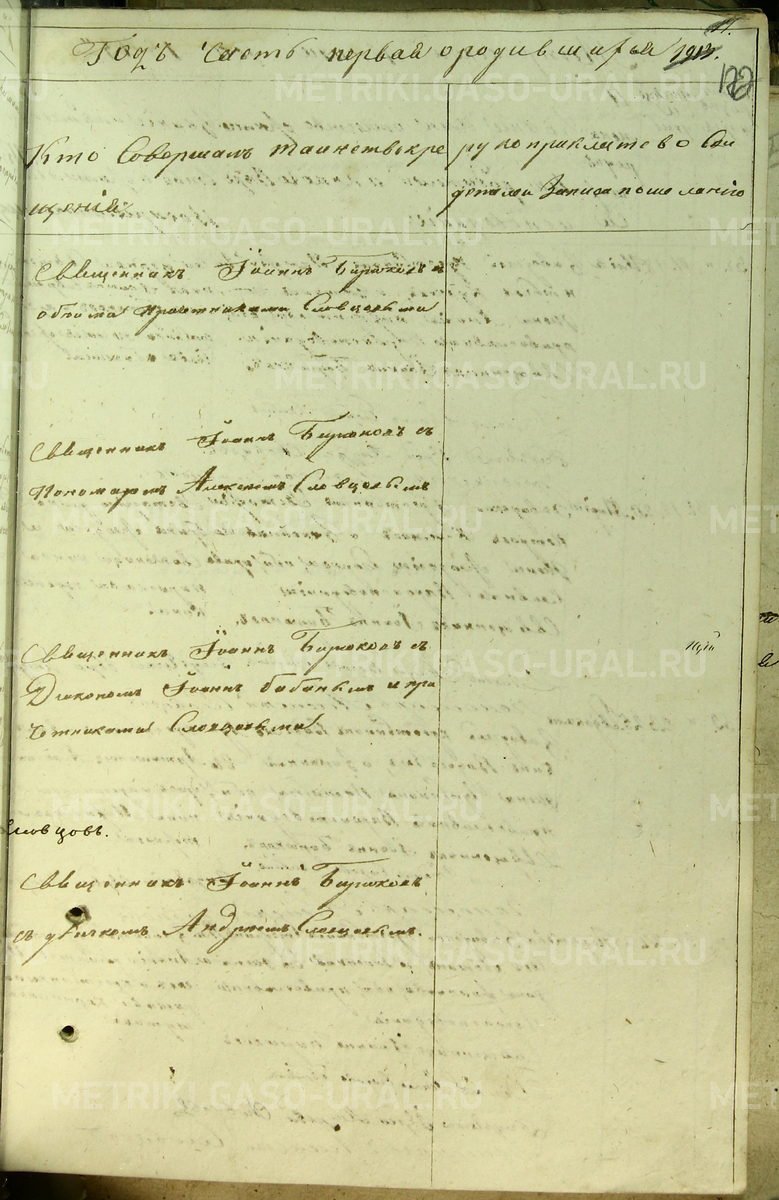 Годъ Часть первая о родившихся
122
Кто Совершалъ таинство кре
щенія
рукоприкладство Сви
детелей Записа по желанію
Священникъ Іоаннъ Бирюковъ с
обоима причтниками Словцовыма
Священникъ Іоаннъ Бирюковъ съ
Пономаремъ Алексеемъ Словцовымъ
Священникъ Іоаннъ Бирюковъ съ
Диакономъ Іоанн Бабинымъ и при
четниками Словцовыми
Словцовъ.
Священникъ Іоаннъ Бирюковъ
съ дьячкомъ Андреемъ Словцовымъ.
METRIKI.GASO-URAL.RU